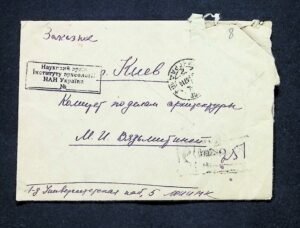 Заказное
8
Науковий архів
Інституту археології
НАН України
№
г. Киев
Комитет по делам архитектуры
М. И. Вязьмитиной
25
1-я Университетская наб, 5